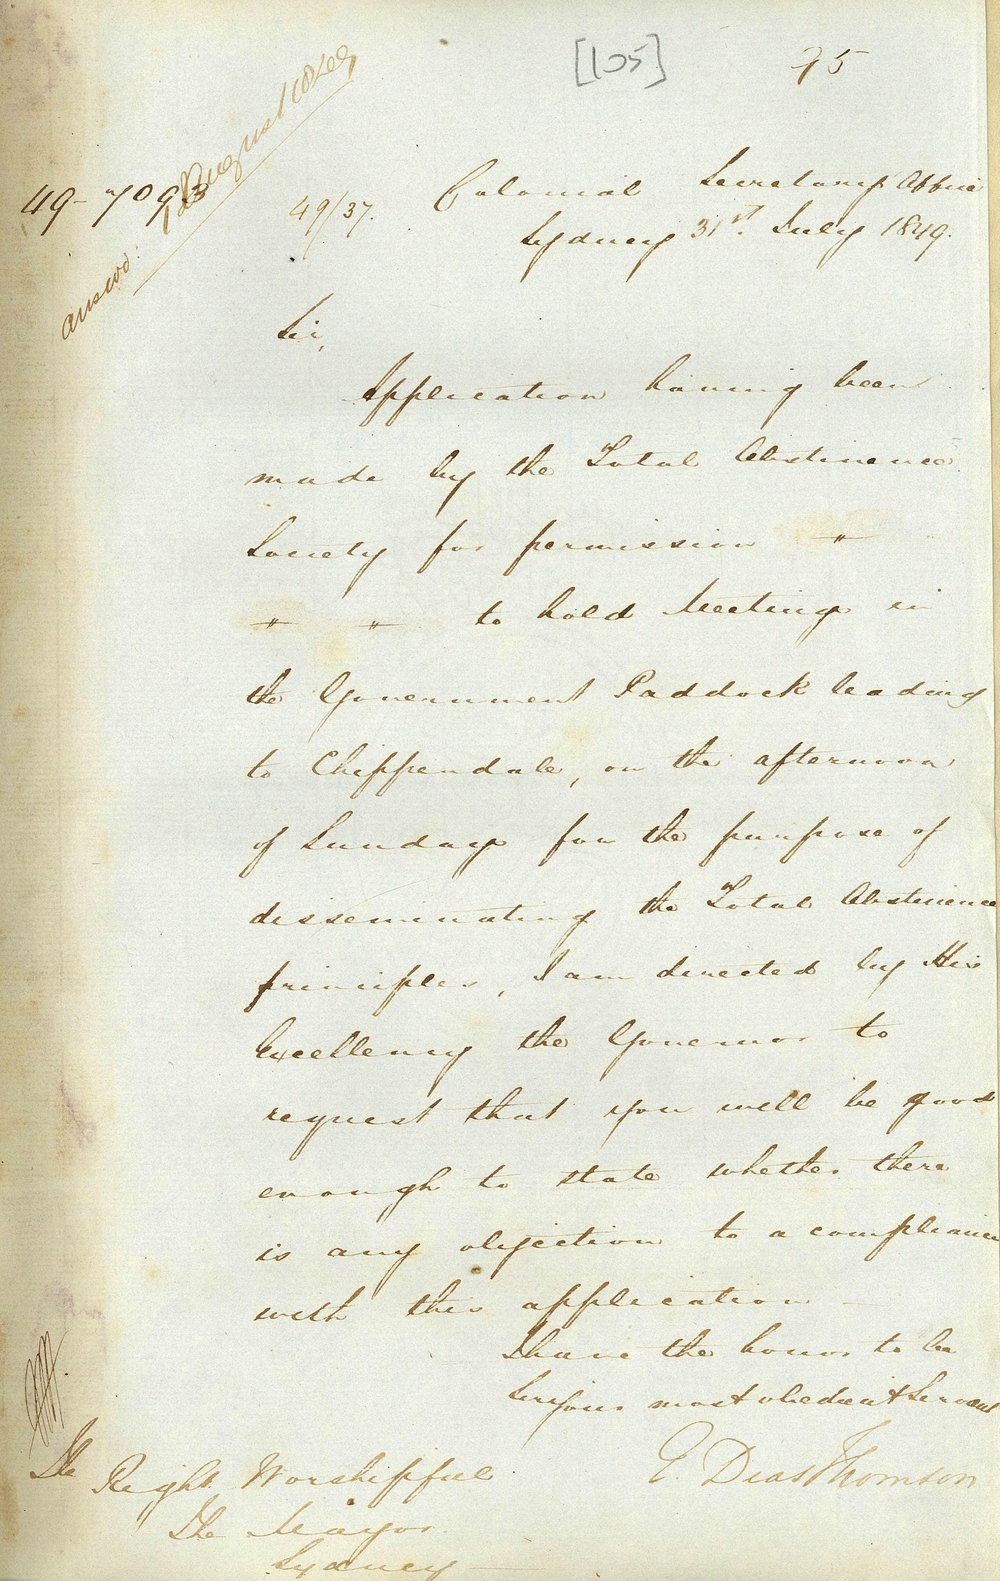 [105] 75
49-7093
answd. August 1849
49/37.
Colonial Secretary's Office
Sydney 31st. July 1849.
Sir,
Application having been
made by the Total Abstinence
Society for permission "
" " to hold Meetings in
the Government Paddock leading
to Chippendale, on the afternoon
of Sundays for the purpose of
disseminating the Total Abstinence
principles, I am directed by His
Excellency the Governor to
request that you will be good
enough to state whether there
is any objection to a compliance
with this application —
I have the honor to be
Sir your most obedient Servant
E. Deas Thomson
The Right Worshipful
The Mayor
Sydney —